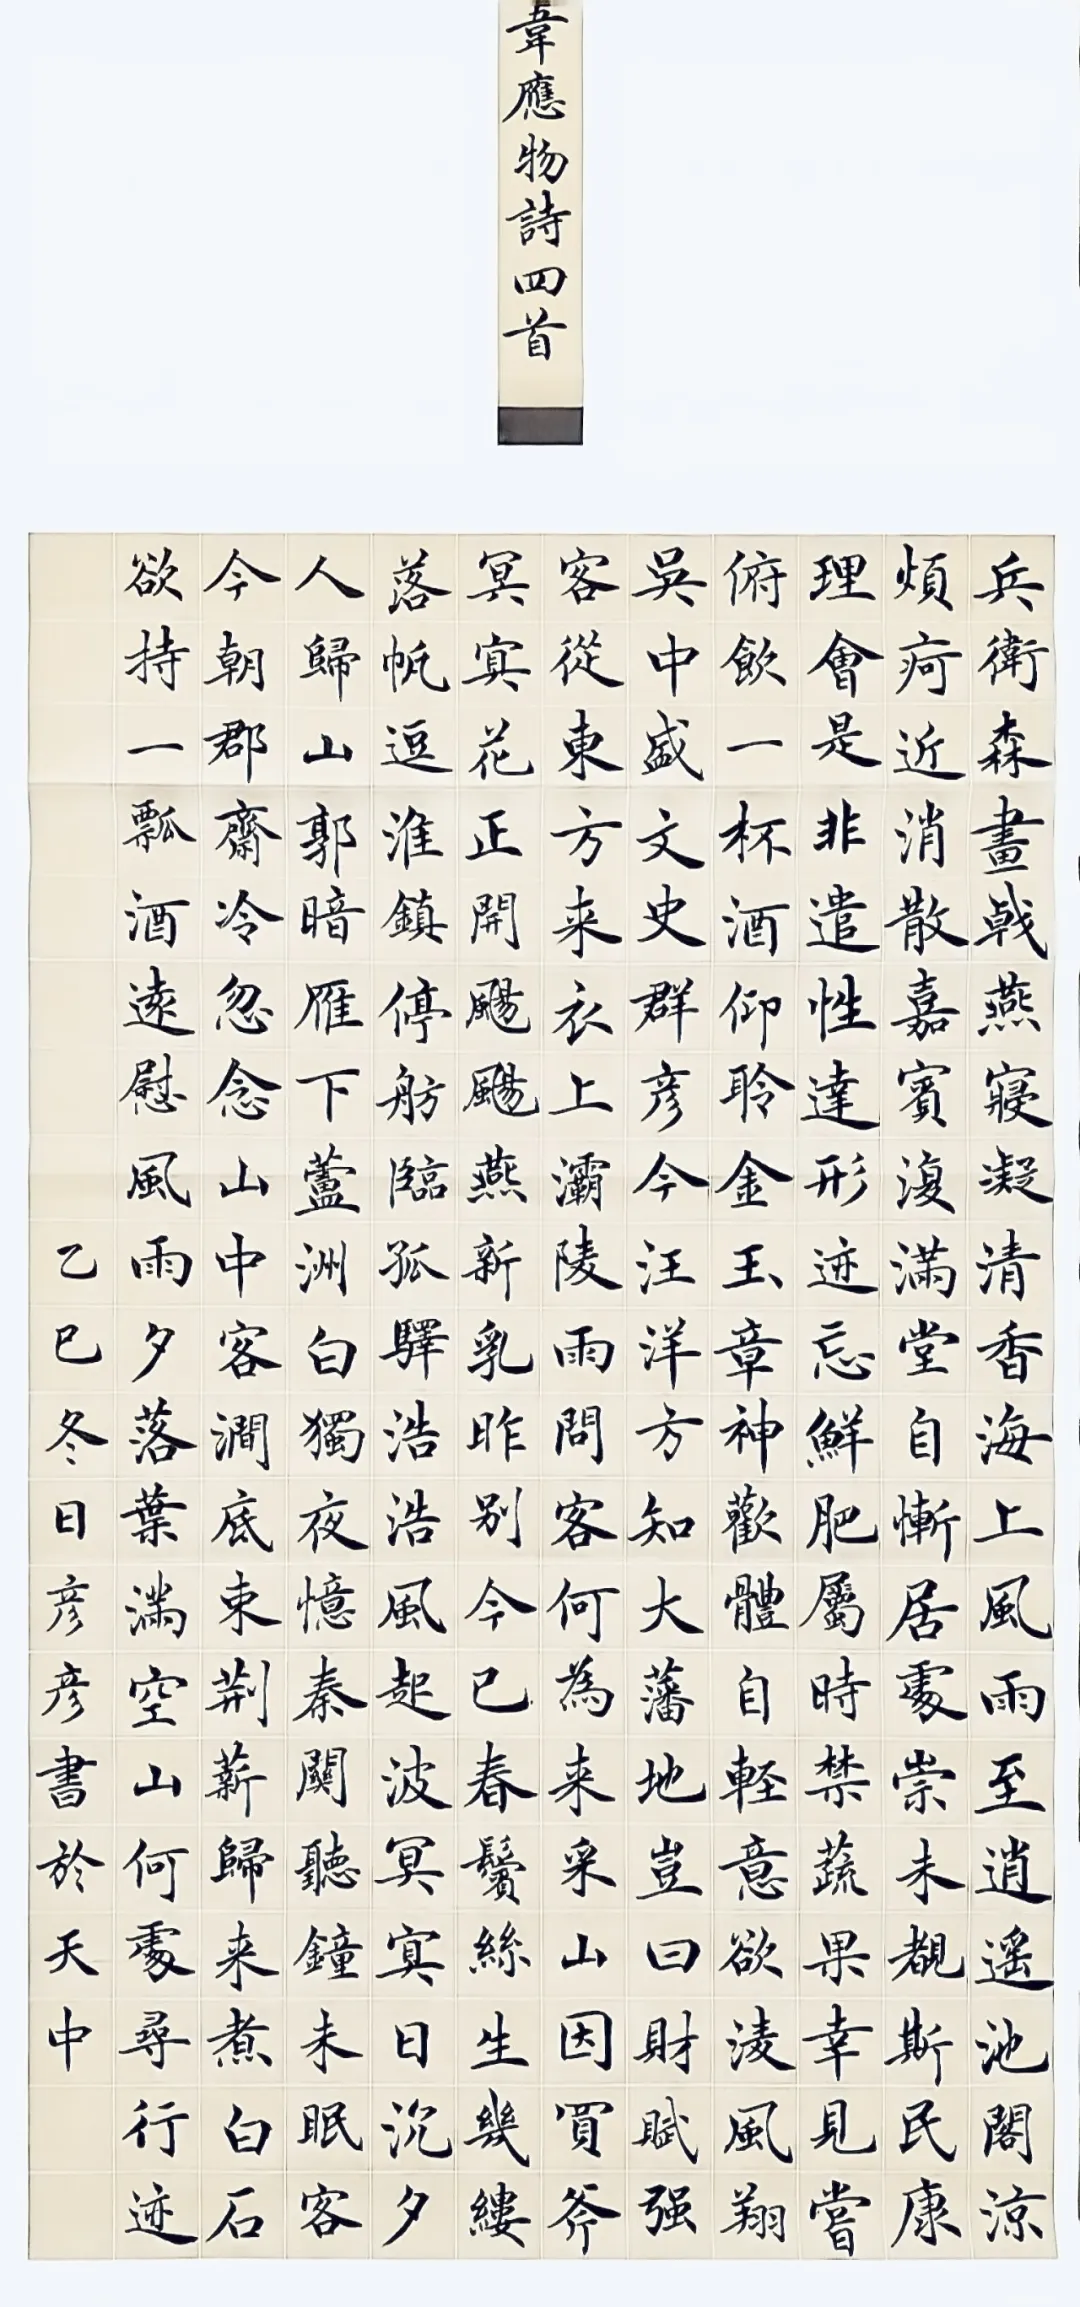 韋應物詩四首
兵衛森畫戟燕寢凝清香海上風雨至逍遥池閣涼
煩疴近消散嘉賓復滿堂自慚居處崇未覩斯民康
理會是非遣性達形迹忘鮮肥屬時禁蔬果幸見嘗
俯飲一杯酒仰聆金玉章神歡體自輕意欲淩風翔
吳中盛文史群彦今汪洋方知大藩地豈曰財賦强
客從東方来衣上灞陵雨問客何為来采山因買斧
冥冥花正開颺颺燕新乳昨别今已春鬢絲生幾縷
落帆逗淮鎮停舫臨孤驛浩浩風起波冥冥日沉夕
人歸山郭暗雁下蘆洲白獨夜憶秦關聽鐘未眠客
今朝郡齋冷忽念山中客澗底束荆薪歸来煮白石
欲持一瓢酒遠慰風雨夕落葉滿空山何處尋行迹
乙巳冬日彦彦書於天中